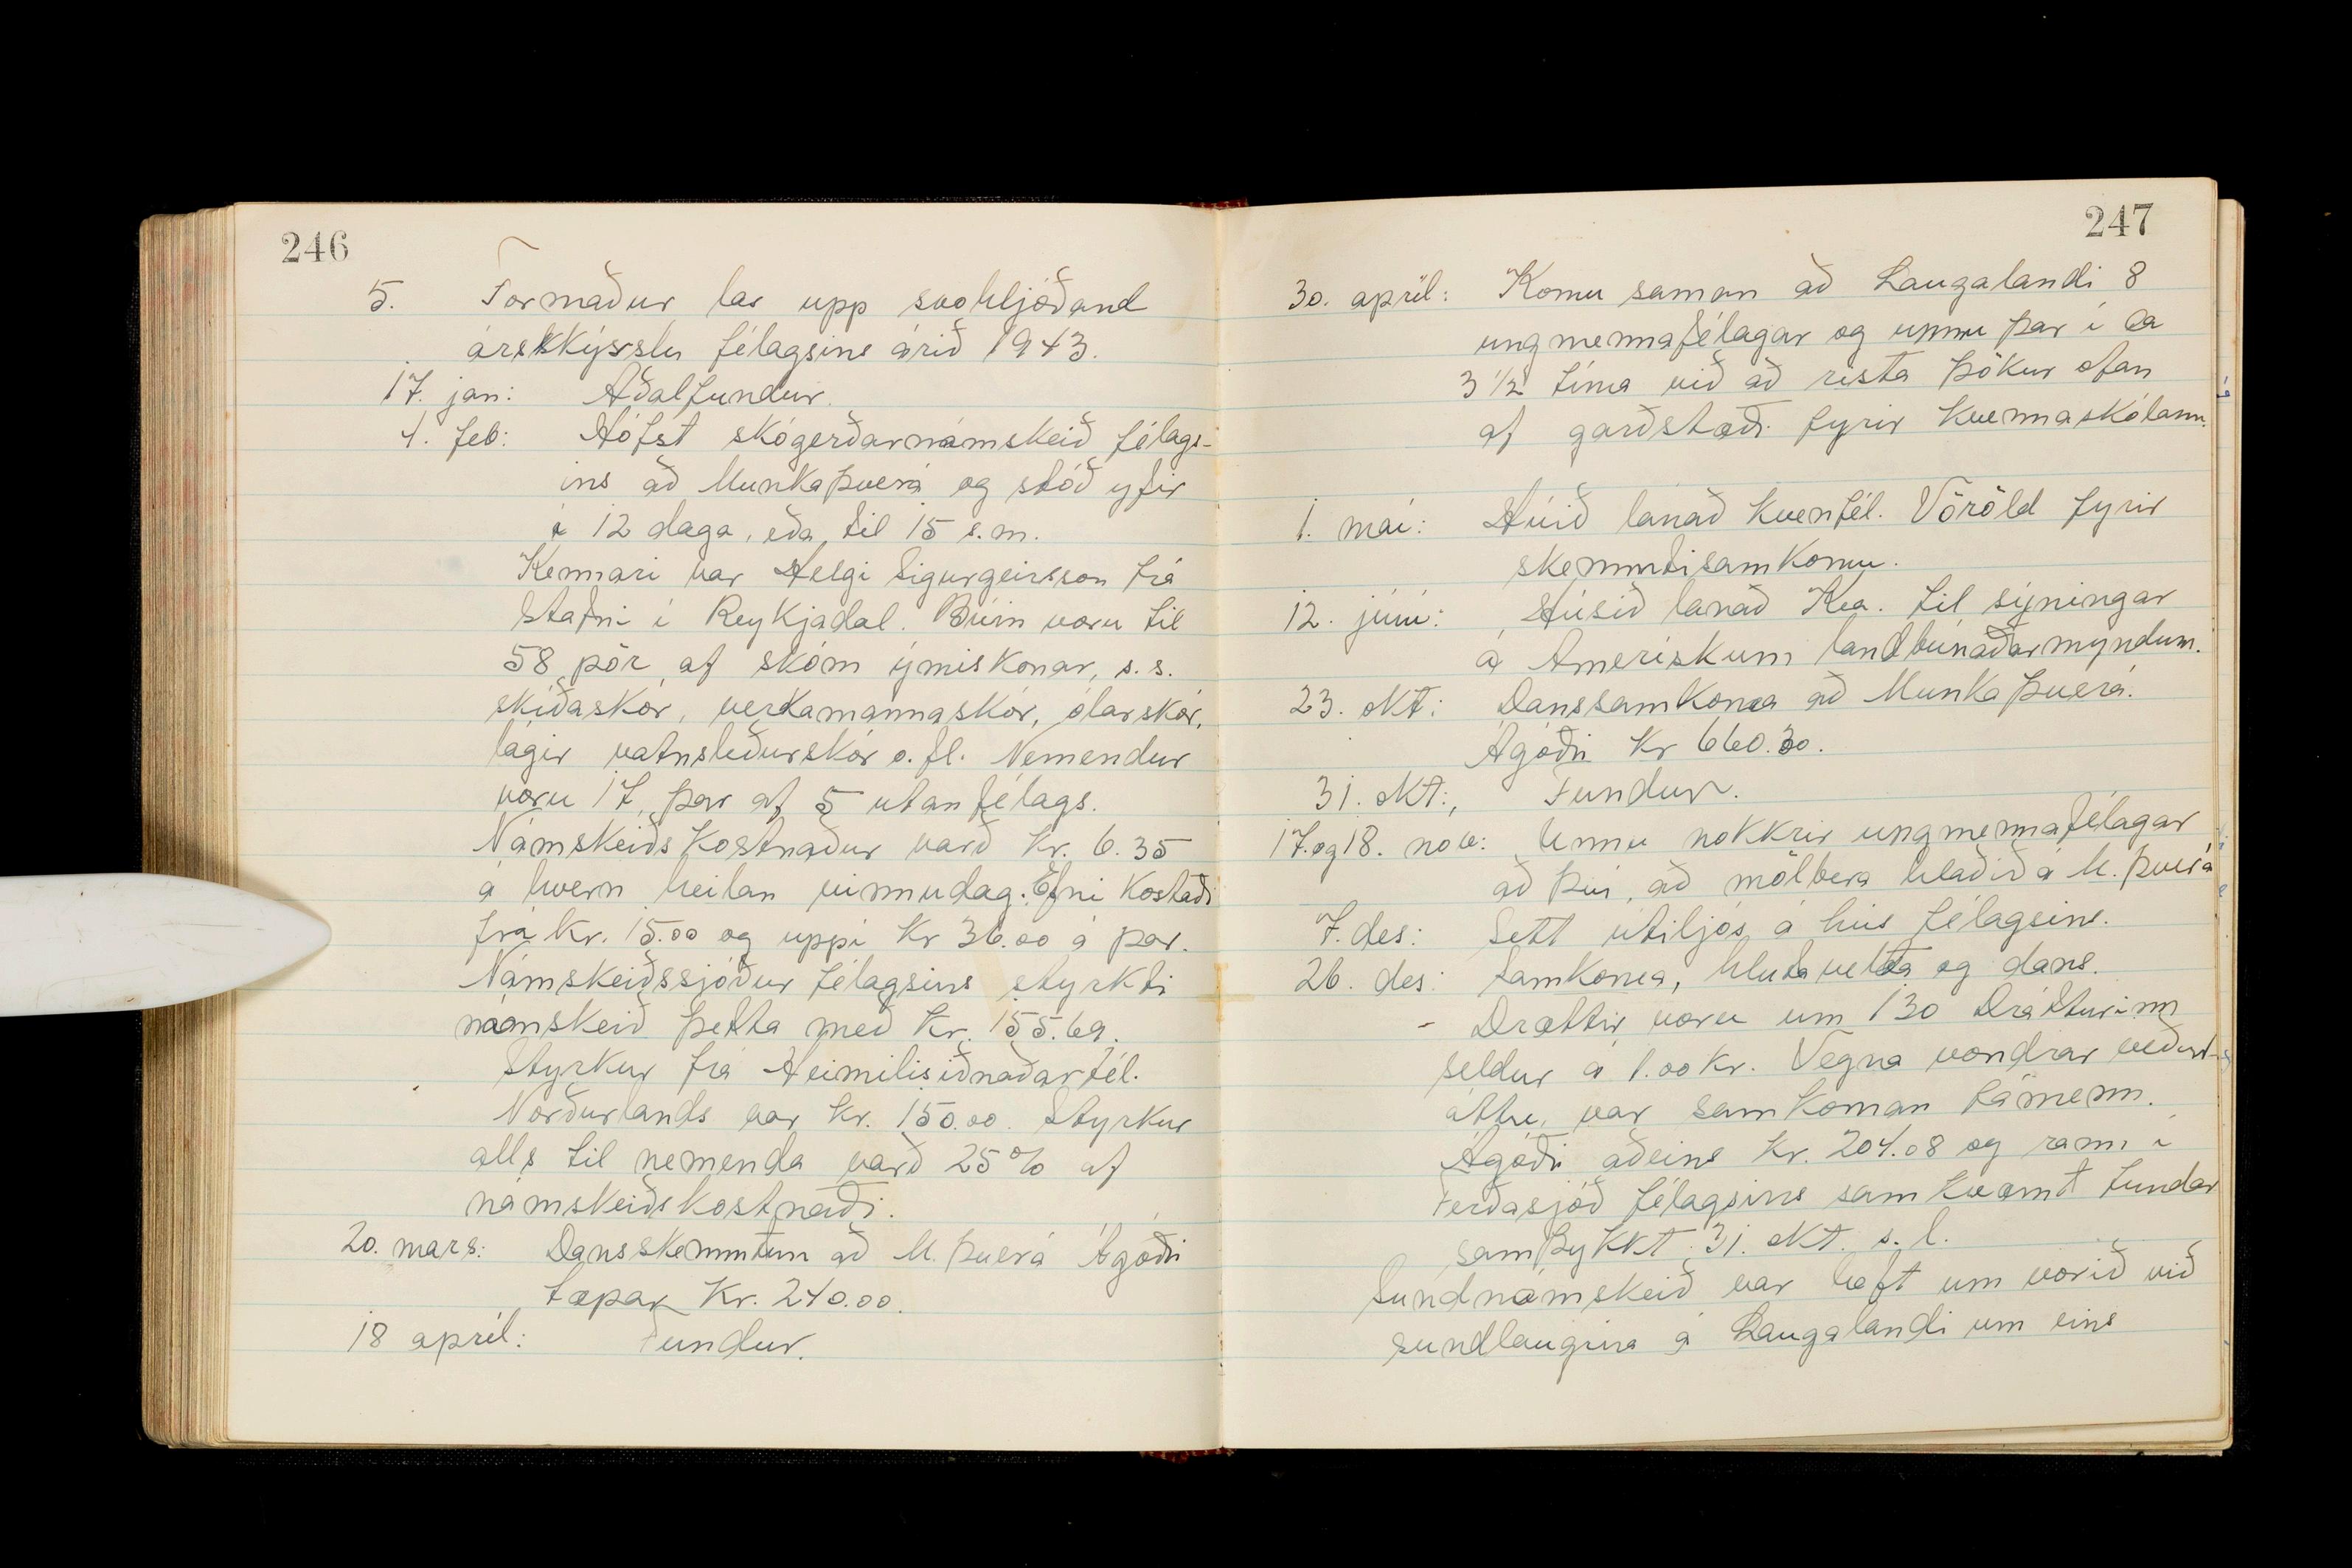 246
5. Formaður las upp svohljóðand
ársskýrslu félagsins árið 1943.
17. jan: Aðalfundur.
4. feb: Hófst skógerðarnámskeið félags-
ins að Munkaþverá og stóð yfir
í 12 daga, eða til 15 s.m.
Kennari var Helgi Sigurgeirsson frá
Stafni í Reykjadal. Búin voru til
58 pör af skóm ýmiskonar, s.s.
skíðaskór, verkamannaskór, ólarskór,
lágir vatnsleðurskór o.fl. Nemendur
voru 17, þar af 5 utanfélags.
Námskeiðskostnaður varð kr. 6.35
á hvern heilan vinnudag. Efni kostaði
frá kr. 15.00 og uppí kr 36.00 á par.
Námskeiðssjóður félagsins styrkti
námskeið þetta með kr. 155.69.
Styrkur frá Heimilisiðnaðarfél.
Norðurlands var kr. 150.00. Styrkur
alls til nemenda varð 25% af
námskeiðskostnaði.
20. mars: Dansskemmtun að M.þverá Ágóði
tæpar kr. 240.00.
18 apríl: Fundur.
247
30. apríl: Komu saman að Laugalandi 8
ungmennafélagar og unnu þar í ca
3 1/2 tíma við að rista þökur ofan
af garðstæði fyrir kvennaskólann.
1. maí: Húið lánað kvenfél. Vöröld fyrir
skemmtisamkomu.
12. júní: Húsið lánað Kea. til sýningar
á Ameriskum landbúnaðarmyndum.
23. okt: Danssamkoma að Munkaþverá.
Ágóði kr 660.30.
31. okt: Fundur.
17. og 18. nov: Unnu nokkrir ungmennafélagar
að því, að mölbera hlaðið á M.þverá
7. des: Sett útiljós á hús félagsins.
26. des: Samkoma, hlutavelta og dans.
- Drættir voru um 130 Drátturinn
seldur á 1.00 kr. Vegna vondrar veðurs
áttu, var samkoman fámenn.
Ágóði aðeins kr. 204.08 og rann í
Ferðasjóð félagsins samkvæmt fundar
samþykkt 31. okt. s.l.
Sundnámskeið var haft um vorið við
sundlaugina á Laugalandi um eins